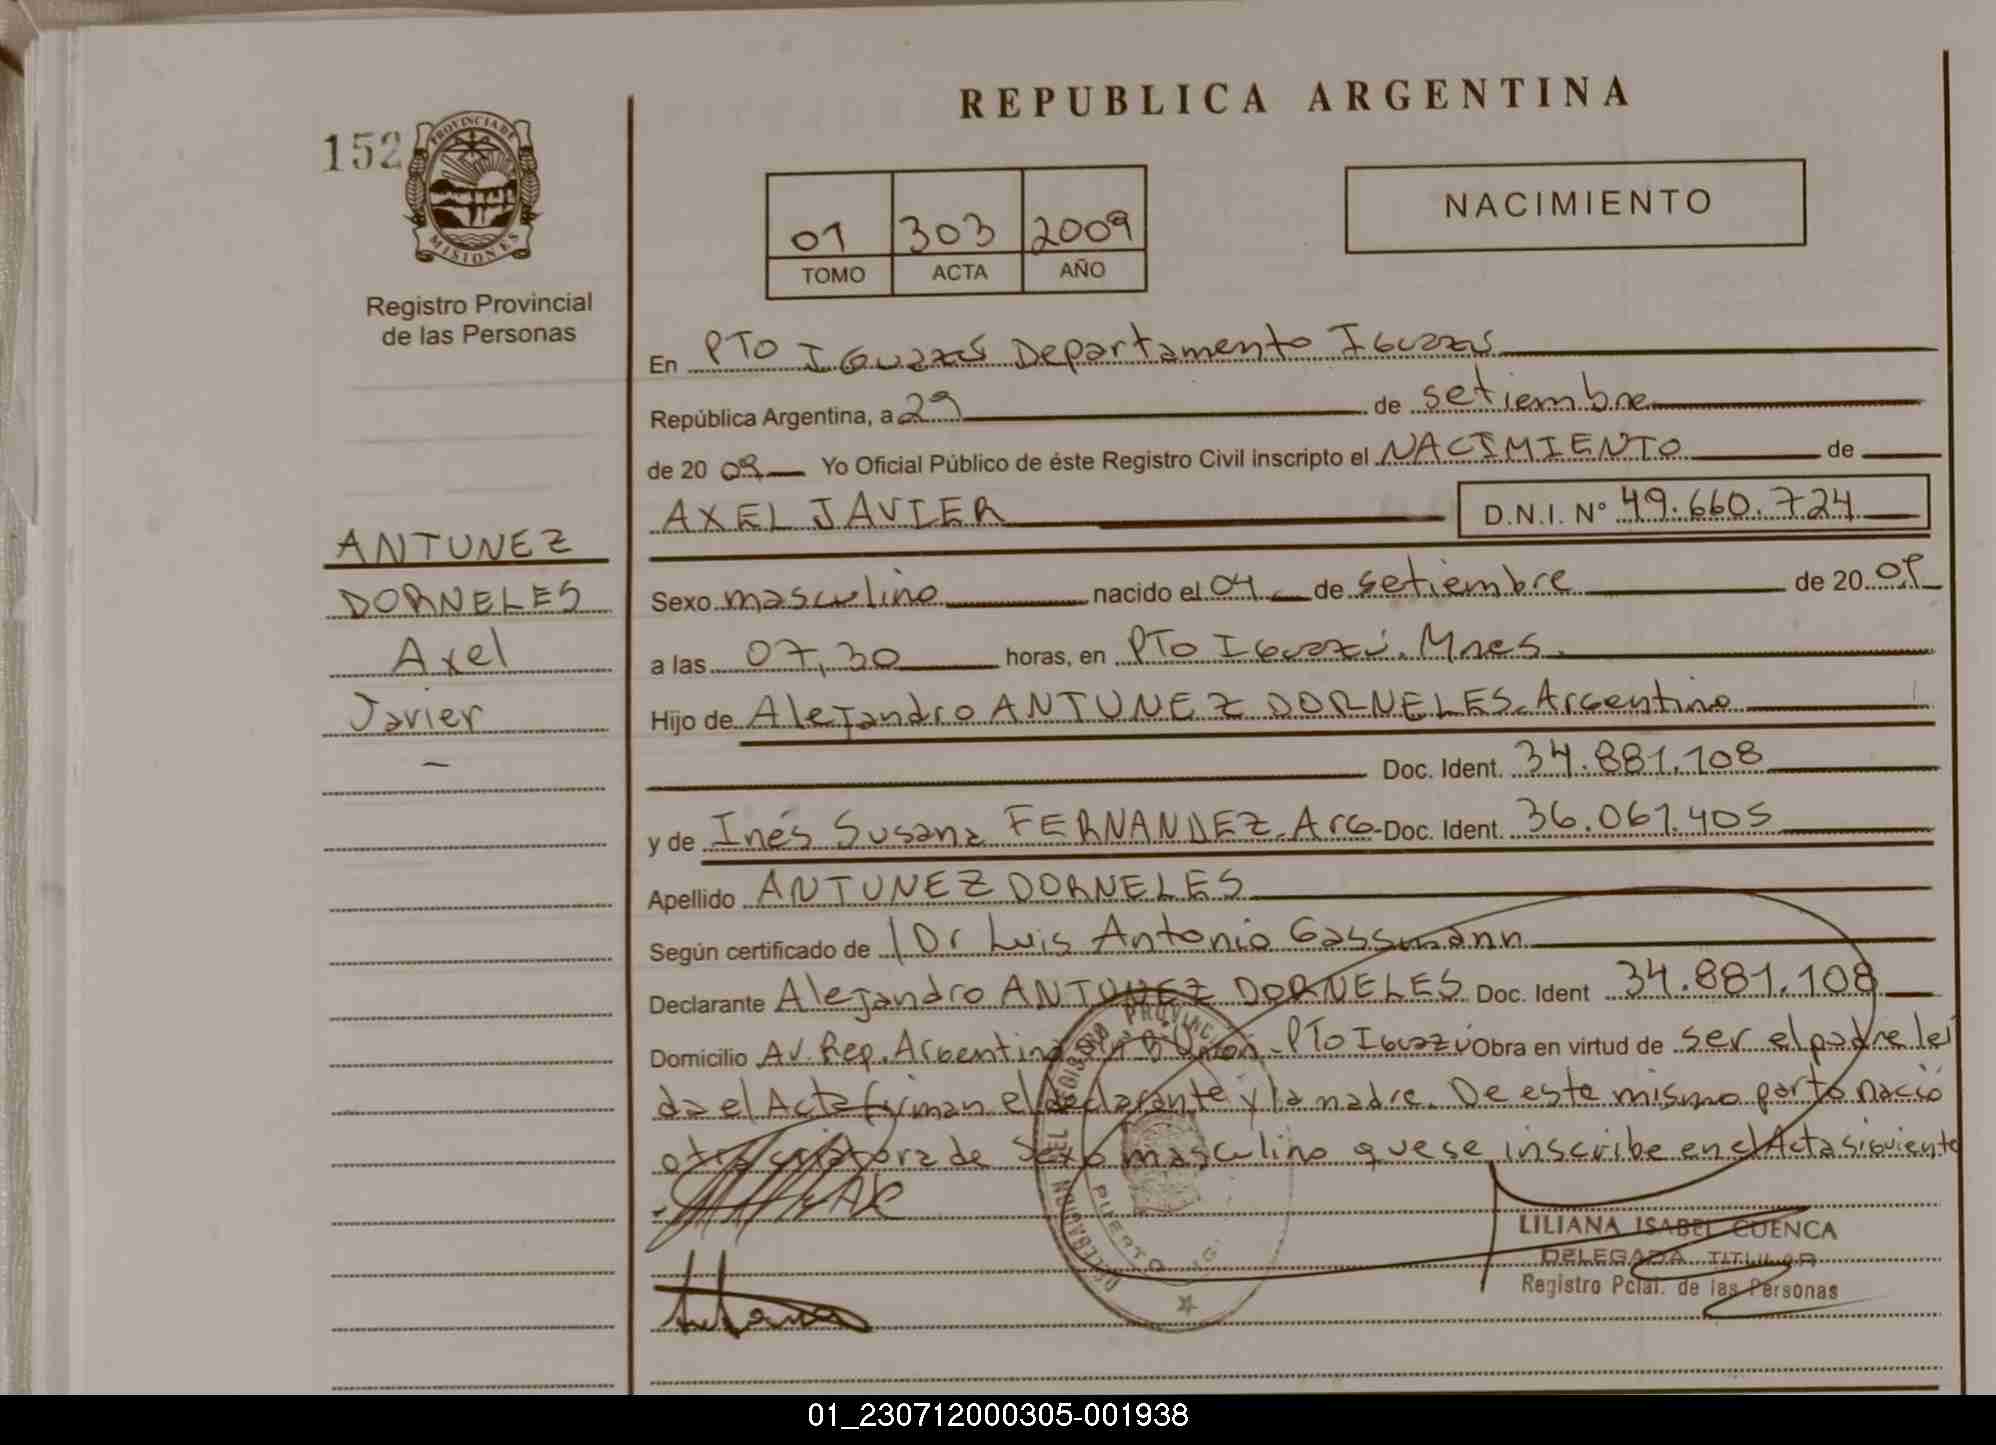 REPUBLICA ARGENTINA
152
PROVINCIA DE
MISIONES
Registro Provincial
de las Personas
01 303 2009
TOMO ACTA AÑO
NACIMIENTO
ANTUNEZ
DORNELES
Axel
Javier
En PTO IGUAZÚ Departamento IGUAZÚ
República Argentina, a 29 de setiembre
de 20 09 Yo Oficial Público de éste Registro Civil inscripto el NACIMIENTO de
AXEL JAVIER D.N.I. Nº 49.660.724
Sexo masculino nacido el 04 de setiembre de 20 09
a las 07,30 horas, en PTO IGUAZÚ. Mnes.
Hijo de Alejandro ANTUNEZ DORNELES. Argentino
Doc. Ident. 34.881.108
y de Inés Susana FERNANDEZ. Arg- Doc. Ident. 36.061.405
Apellido ANTUNEZ DORNELES
Según certificado de Dr Luis Antonio Gassmann
Declarante Alejandro ANTUNEZ DORNELES Doc. Ident 34.881.108
Domicilio AV. Rep. Argentina Unión - PTO IGUAZÚ Obra en virtud de ser el padre lei
da el Acta firman el declarante y la madre. De este mismo parto nació
otra criatura de sexo masculino que se inscribe en el Acta siguiente
LILIANA ISABEL CUENCA
DELEGADA TITULAR
Registro Pcial. de las Personas
01_230712000305-001938